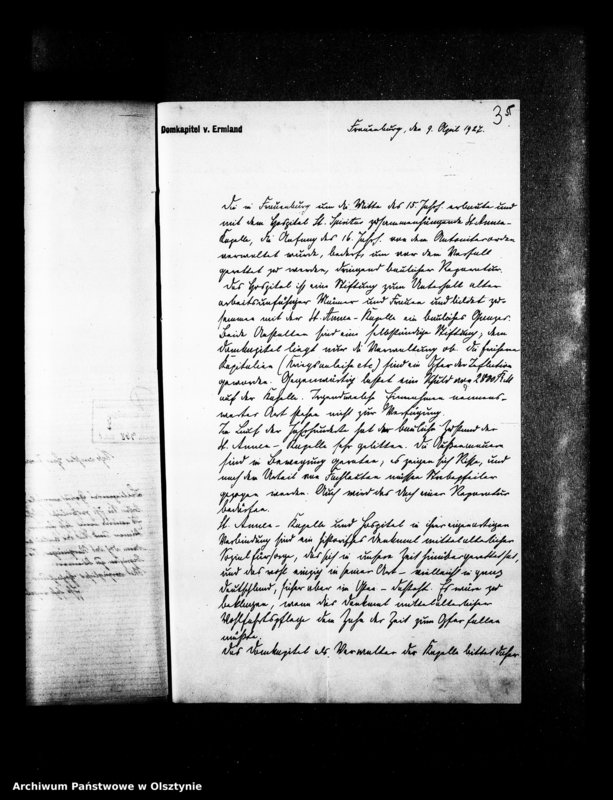 35
Domkapitel v. Ermland
Frauenburg, den 9. April 1927.
Die in Frauenburg um die Mitte des 15. Jahrh. erbaute und
mit dem Hospital St. Spiritus zusammenhängende St. Anna-
Kapelle, die Anfang des 16. Jahrh. von dem Antoniterorden
verwaltet wurde, bedarf, um vor dem Verfall
gerettet zu werden, dringend baulicher Reparatur.
Das Hospital ist eine Stiftung zum Unterhalt alter
arbeitsunfähiger Männer und Frauen und bildet zu-
sammen mit der St. Anna-Kapelle ein bauliches Ganzes.
Beide Anstalten sind eine selbständige Stiftung; dem
Domkapitel liegt nur die Verwaltung ob. Die früheren
Kapitalien (Kriegsanleihe etc) sind ein Opfer der Inflation
geworden. Gegenwärtig lastet eine Schuld von 2800 RM
auf der Kapelle. Irgendwelche Einnahmen nennens-
werter Art stehen nicht zur Verfügung.
Im Lauf der Jahrhunderte hat der bauliche Zustand der
St. Anna-Kapelle sehr gelitten. Die Außenmauern
sind in Bewegung geraten, es zeigen sich Risse, und
nach dem Urteil von Fachleuten müssen Strebepfeiler
gezogen werden. Auch wird das Dach einer Reparatur
bedürfen.
St. Anna-Kapelle und Hospital in ihrer eigenartigen
Verbindung sind ein historisches Denkmal mittelalterlicher
Sozialfürsorge, das sich in unsere Zeit hinübergerettet hat,
und das wohl einzig in seiner Art - vielleicht in ganz
Deutschland, sicher aber im Osten - dasteht. Es wäre zu
beklagen, wenn das Denkmal mittelalterlicher
Wohlfahrtspflege dem Zahn der Zeit zum Opfer fallen
müßte.
Das Domkapitel als Verwalter der Kapelle bittet daher
Archiwum Państwowe w Olsztynie